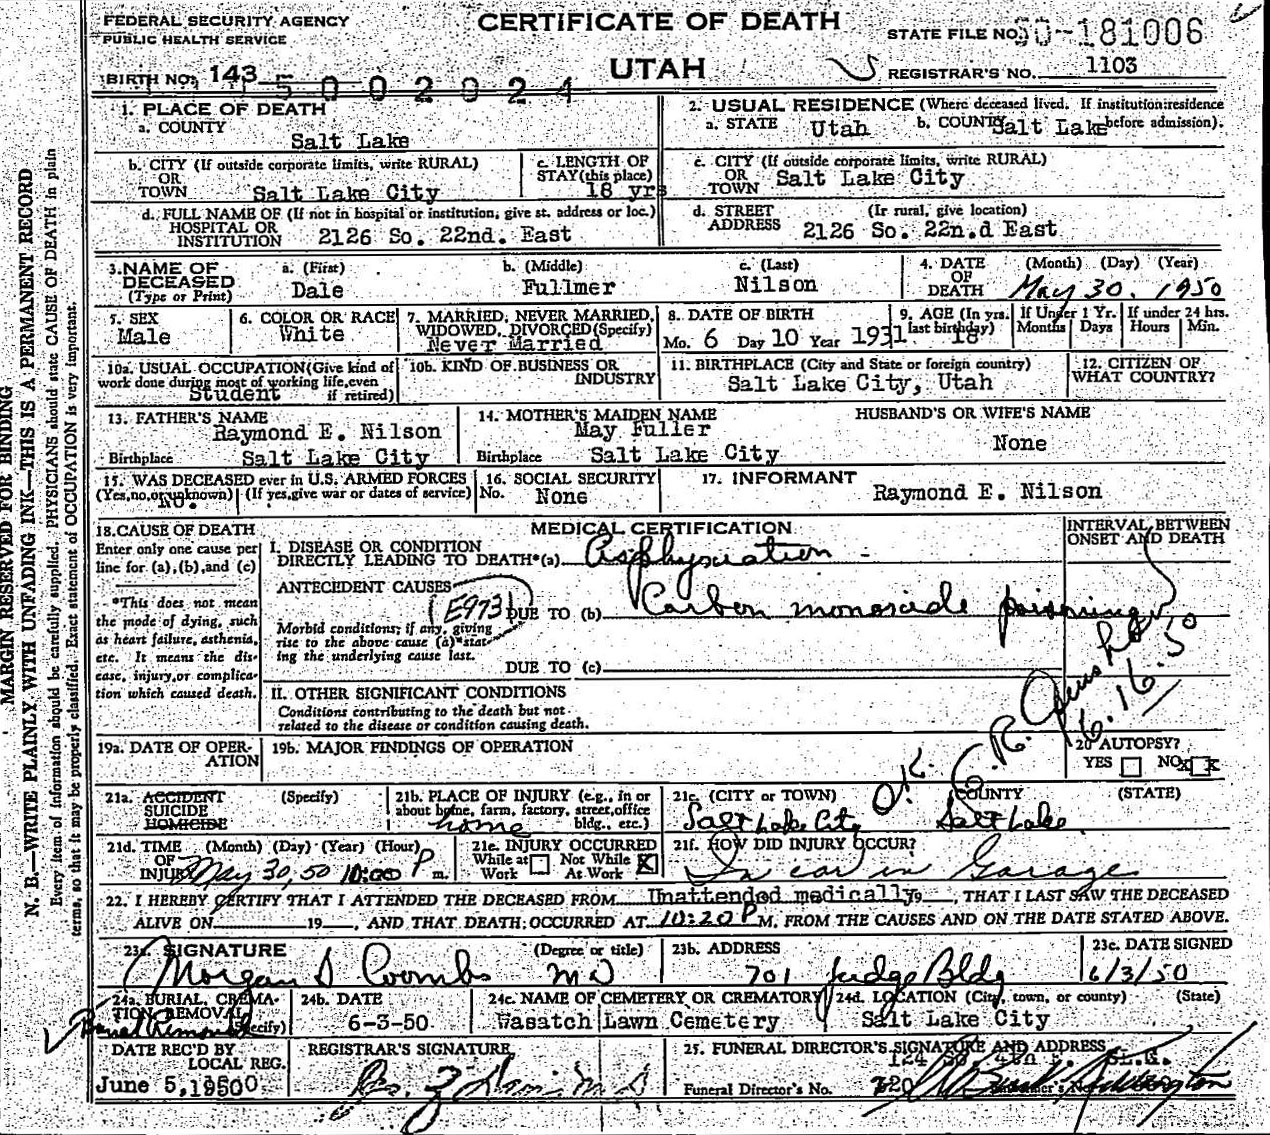 FEDERAL SECURITY AGENCY
PUBLIC HEALTH SERVICE
CERTIFICATE OF DEATH
STATE FILE NO. 50-181006
BIRTH NO. 143 5 0 0 2 0 2 4
UTAH
REGISTRAR'S NO. 1103
1. PLACE OF DEATH
a. COUNTY
Salt Lake
2. USUAL RESIDENCE (Where deceased lived. If institution: residence before admission).
a. STATE Utah b. COUNTY Salt Lake
b. CITY (If outside corporate limits, write RURAL)
OR
TOWN Salt Lake City
c. LENGTH OF
STAY (this place)
18 yrs
c. CITY (If outside corporate limits, write RURAL)
OR
TOWN Salt Lake City
d. FULL NAME OF (If not in hospital or institution, give st. address or loc.)
HOSPITAL OR
INSTITUTION 2126 So. 22nd. East
d. STREET (If rural, give location)
ADDRESS 2126 So. 22n.d East
3. NAME OF
DECEASED
(Type or Print)
a. (First) b. (Middle) c. (Last)
Dale Fullmer Nilson
4. DATE OF DEATH (Month) (Day) (Year)
May 30. 1950
5. SEX
Male
6. COLOR OR RACE
White
7. MARRIED, NEVER MARRIED,
WIDOWED, DIVORCED (Specify)
Never Married
8. DATE OF BIRTH
Mo. 6 Day 10 Year 1931
9. AGE (In yrs. last birthday) 18
If Under 1 Yr. Months Days
If under 24 hrs. Hours Min.
10a. USUAL OCCUPATION (Give kind of
work done during most of working life, even
if retired)
Student
10b. KIND OF BUSINESS OR
INDUSTRY
11. BIRTHPLACE (City and State or foreign country)
Salt Lake City, Utah
12. CITIZEN OF
WHAT COUNTRY?
13. FATHER'S NAME
Raymond E. Nilson
Birthplace Salt Lake City
14. MOTHER'S MAIDEN NAME
May Fuller
Birthplace Salt Lake City
HUSBAND'S OR WIFE'S NAME
None
15. WAS DECEASED ever in U.S. ARMED FORCES
(Yes, no, or unknown) (If yes, give war or dates of service)
No.
16. SOCIAL SECURITY
No. None
17. INFORMANT
Raymond E. Nilson
18. CAUSE OF DEATH
Enter only one cause per
line for (a), (b), and (c)
*This does not mean
the mode of dying, such
as heart failure, asthenia,
etc. It means the dis-
ease, injury, or complica-
tion which caused death.
MEDICAL CERTIFICATION
INTERVAL BETWEEN
ONSET AND DEATH
I. DISEASE OR CONDITION
DIRECTLY LEADING TO DEATH*(a) Asphyxiation
ANTECEDENT CAUSES
E973 DUE TO (b) Carbon monoxide poisoning
Morbid conditions, if any, giving
rise to the above cause (a) stat-
ing the underlying cause last.
DUE TO (c)
II. OTHER SIGNIFICANT CONDITIONS
Conditions contributing to the death but not
related to the disease or condition causing death.
O.K. C.R. 6.16.50
19a. DATE OF OPER-
ATION
19b. MAJOR FINDINGS OF OPERATION
20 AUTOPSY?
YES NO x
21a. ACCIDENT (Specify)
SUICIDE
HOMICIDE
21b. PLACE OF INJURY (e.g., in or
about home, farm, factory, street, office
bldg., etc.)
home
21c. (CITY or TOWN) COUNTY (STATE)
Salt Lake City Salt Lake
21d. TIME (Month) (Day) (Year) (Hour)
OF
INJURY May 30, 50 10:00 P m.
21e. INJURY OCCURRED
While at Work Not While At Work X
21f. HOW DID INJURY OCCUR?
In car in Garage
22. I HEREBY CERTIFY THAT I ATTENDED THE DECEASED FROM Unattended medically 19, THAT I LAST SAW THE DECEASED
ALIVE ON 19, AND THAT DEATH OCCURRED AT 10:20 P M. FROM THE CAUSES AND ON THE DATE STATED ABOVE.
23a. SIGNATURE (Degree or title)
Morgan S Coombs MD
23b. ADDRESS
701 Judge Bldg
23c. DATE SIGNED
6/3/50
24a. BURIAL, CREMA-
TION REMOVAL
(Specify)
24b. DATE
6-3-50
24c. NAME OF CEMETERY OR CREMATORY
Wasatch Lawn Cemetery
24d. LOCATION (City, town, or county) (State)
Salt Lake City
DATE REC'D BY
LOCAL REG.
June 5, 1950
REGISTRAR'S SIGNATURE
25. FUNERAL DIRECTOR'S SIGNATURE AND ADDRESS
124 So. 4th E. SL.C.
Funeral Director's No.
MARGIN RESERVED FOR BINDING
N. B.—WRITE PLAINLY WITH UNFADING INK—THIS IS A PERMANENT RECORD
Every item of information should be carefully supplied. PHYSICIANS should state CAUSE OF DEATH in plain
terms, so that it may be properly classified. Exact statement of OCCUPATION is very important.